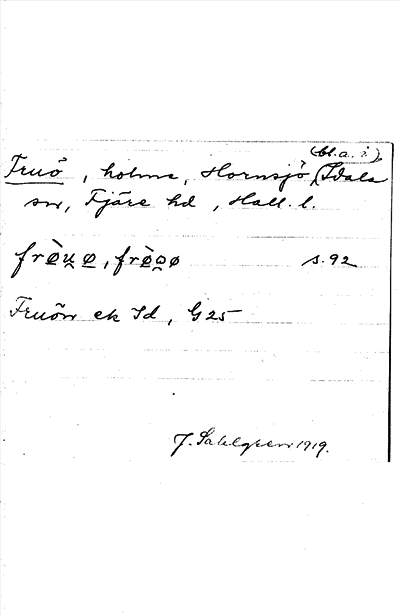 (bl.a. i)
Fruö, holme, Hornsjö, Idala
sn, Fjäre hd, Hall. l.
frèu̯ø, frèo̯ø s. 92
Fruön ek Id, G25
J. Sahlgren 1919.